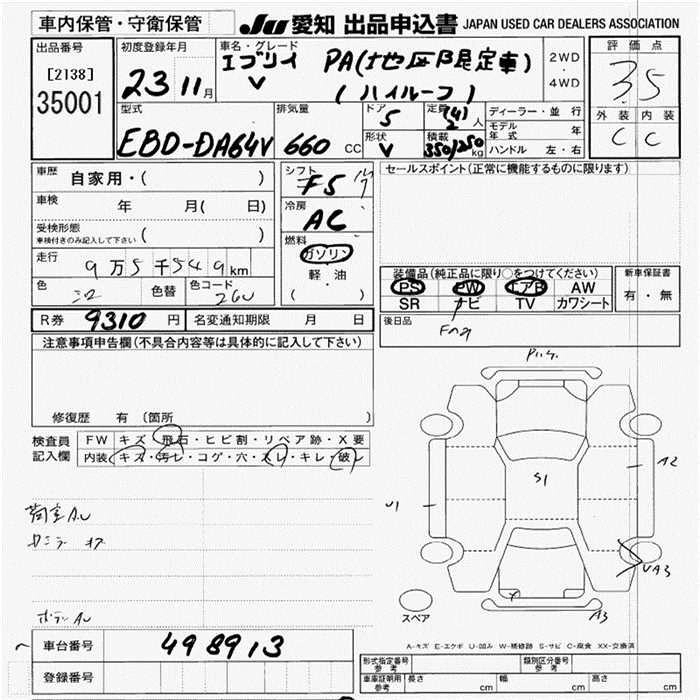 車内保管・守衛保管
JU 愛知 出品申込書 JAPAN USED CAR DEALERS ASSOCIATION
出品番号
[2138]
35001
初度登録年月
23 11 月
車名・グレード
エブリイ
V
PA(
(ハイルーフ)
2WD
・
4WD
評価点
3.5
外装 内装
C C
型式
EBD-DA64V
排気量
660 CC
ドア
5
形状
V
定員
(4)
2 人
積載
350/250 kg
ディーラー・並行
モデル年式 年
ハンドル 左・右
車歴
自家用・( )
車検
年 月( 日)
受検形態
車検付きのみ記入して下さい ( )
走行
9万5千549km
色 色替 色コード
26U
シフト
F5
冷房
AC
燃料
ガソリン
軽・油
( )
セールスポイント(正常に機能するものに限ります)
装備品(純正品に限り○をつけてください)
PS PW エアB AW
SR ナビ TV カワシート
新車保証書
有・無
R券 9310 円 名変通知期限 月 日
後日品
注意事項申告欄(不具合内容等は具体的に記入して下さい)
修復歴 有 〔箇所 〕
検査員
記入欄
FW キズ・飛石・ヒビ割・リペア跡・X要
内装 キズ・汚レ・コゲ・穴・スレ・キレ・破レ
荷室AU
ボデーAU
S1
U1
A2
UA3
A3
スペア
A-キズ E-エクボ U-凹み W-補修跡 S-サビ C-腐食 XX-交換済
車台番号 498913
登録番号
形式指定番号
参考
類別区分番号
参考
車庫証明用
参考
長さ cm 幅 cm 高さ cm